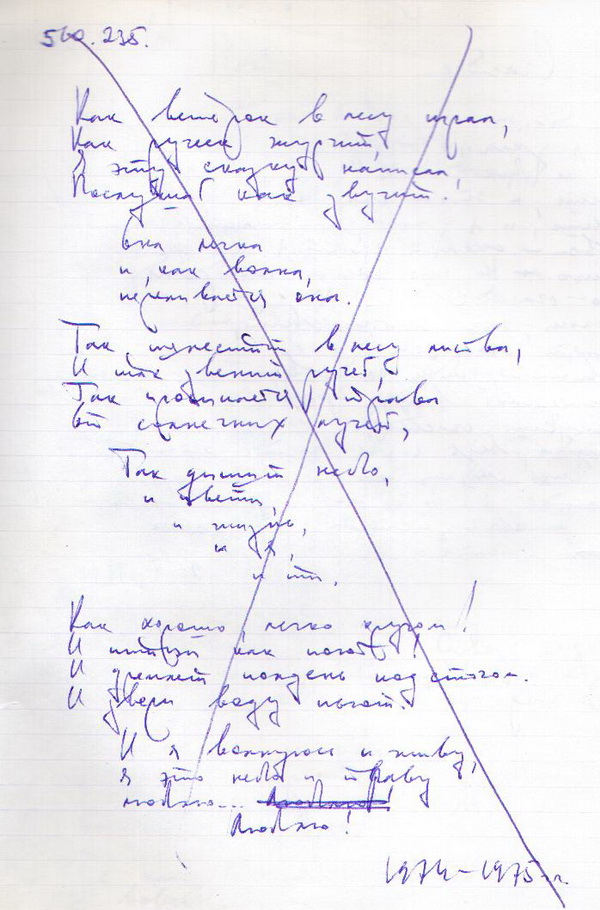 560. 235.
Как ветерок в лесу играл,
Как ручеёк журчит,
Я эту сказку написал,
Послушай как звучит!
Она легка
и, как волна,
переливается она.
Так шелестит в лесу листва,
И так звенит ручей,
Так пробивается трава
От солнечных лучей,
Так дышит небо,
и цветы,
и жизнь,
и я,
и ты.
Как хорошо, легко кругом!
И птицы как поют!
И дремлет полдень под стогом.
И звери воду пьют.
И я волнуюсь и живу,
я это небо и траву
люблю... люблю!
Люблю!
1974-1975 г.